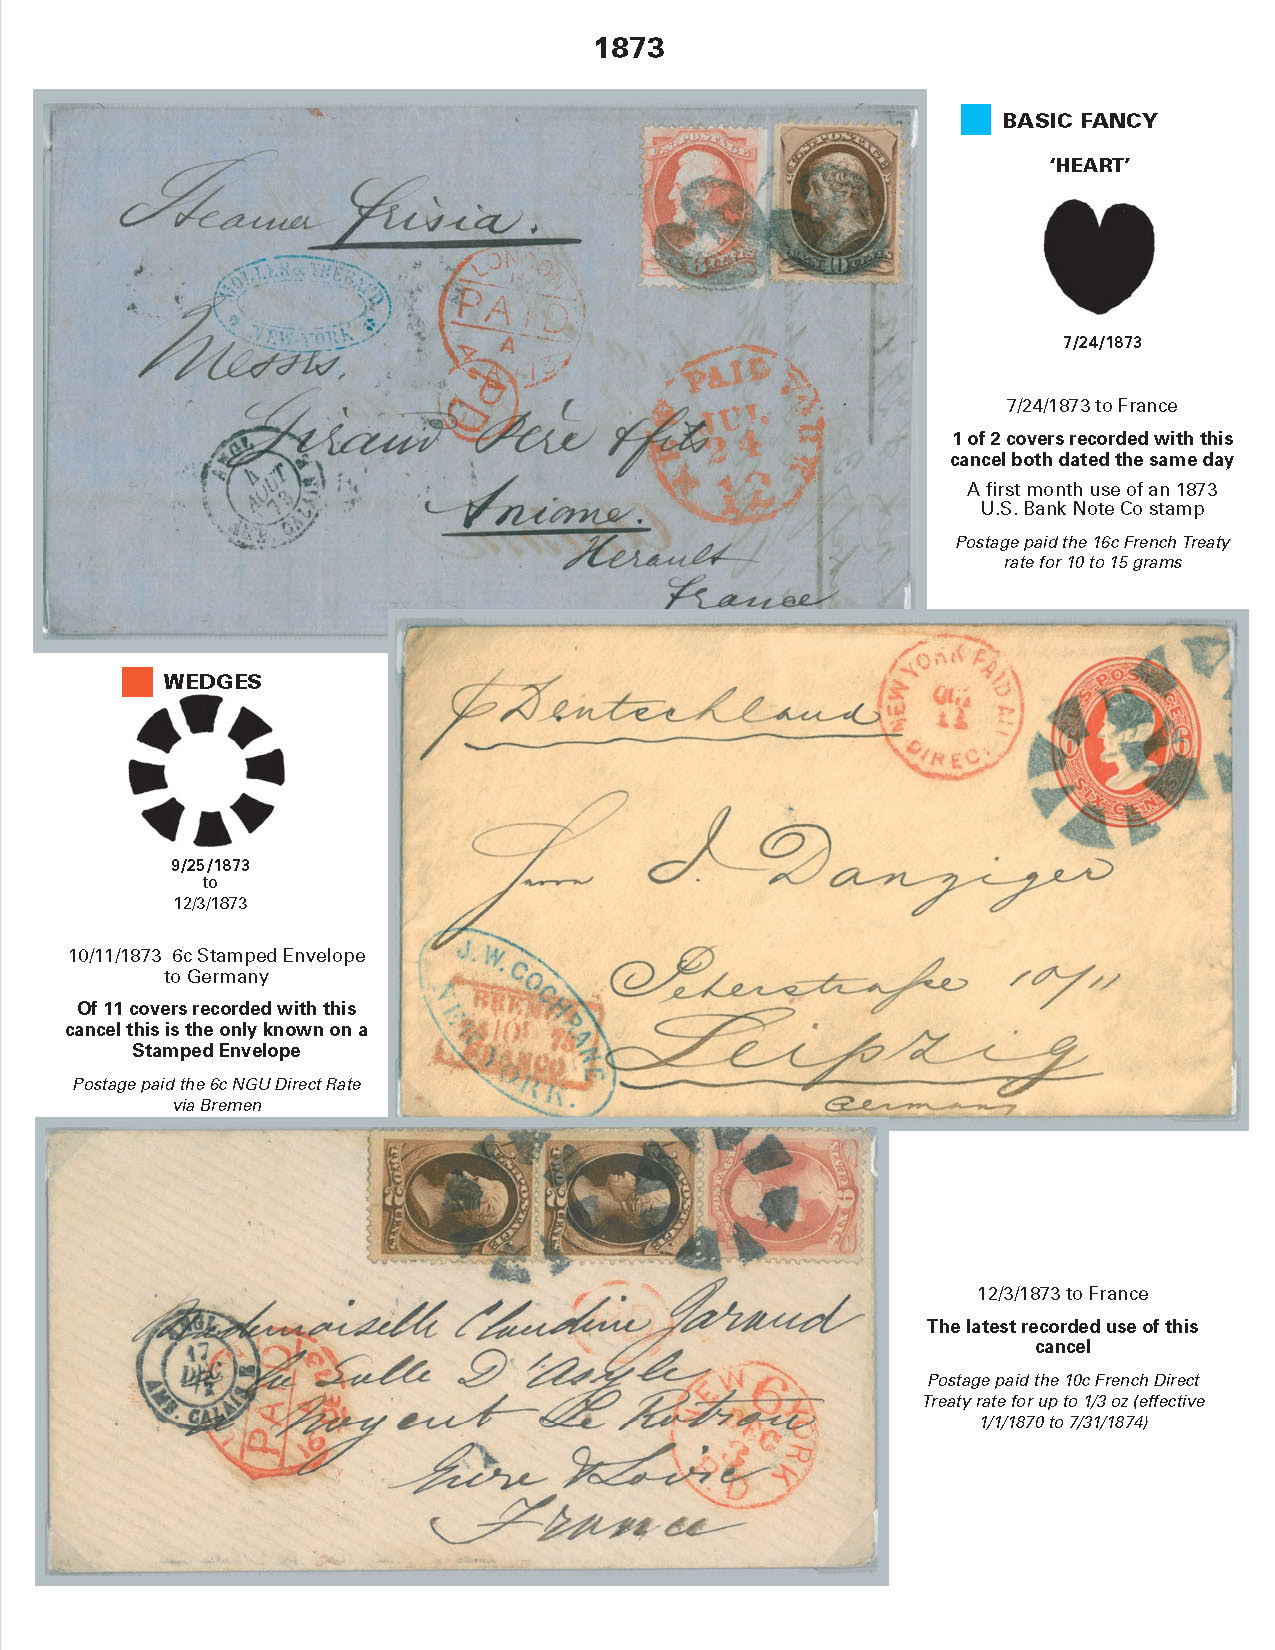 1873
Steamer Frisia.
MOLLER & THEBAUD
NEW-YORK
LONDON
PAID
A
PD
U.S. POSTAGE
U.S. POSTAGE
10
Messrs.
Giraud Père & fils
Aniane.
Herault
France
PAID
JUL.
24
12
ANGL.
4
AOUT
73
AMB. CALAIS
BASIC FANCY
‘HEART’
7/24/1873
7/24/1873 to France
1 of 2 covers recorded with this
cancel both dated the same day
A first month use of an 1873
U.S. Bank Note Co stamp
Postage paid the 16c French Treaty
rate for 10 to 15 grams
WEDGES
9/25/1873
to
12/3/1873
10/11/1873 6c Stamped Envelope
to Germany
Of 11 covers recorded with this
cancel this is the only known on a
Stamped Envelope
Postage paid the 6c NGU Direct Rate
via Bremen
Deutschland
NEW YORK PAID ALL
11
DIRECT
U.S. POSTAGE
6 6
SIX CENTS
Herrn J. Danziger
Peterstraße 10/11
Leipzig
Germany
J. W. COCHRANE
NEW YORK.
BREMEN
FRANCO
U.S. POSTAGE
TWO CENTS
U.S. POSTAGE
TWO CENTS
6
Mademoiselle Claudine Garaud
La Salle D'Asyle
a Nogent Le Rotrou
Eure & Loire
France
ANGL.
17
DEC
73
AMB. CALAIS
PAID
NEW YORK
6
DEC
3
PD
12/3/1873 to France
The latest recorded use of this
cancel
Postage paid the 10c French Direct
Treaty rate for up to 1/3 oz (effective
1/1/1870 to 7/31/1874)